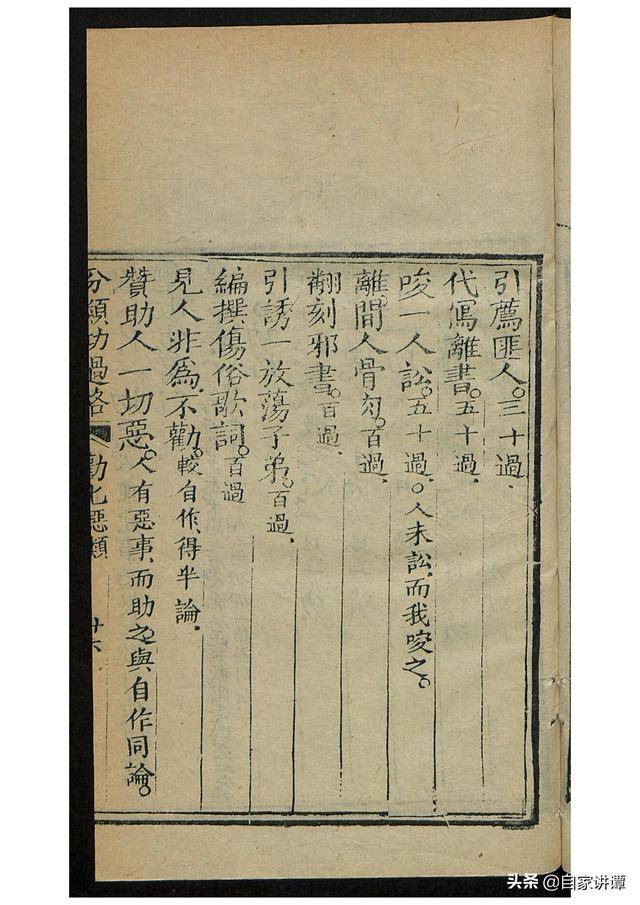 引薦匪人。三十過。
代寫離書。五十過。
唆一人訟。五十過。○人未訟。而我唆之。
離間人骨肉。百過。
翻刻邪書。百過。
引誘一放蕩子弟。百過。
編撰傷俗歌詞。百過
見人非爲。不勸。較自作。得半論。
贊助人一切惡。人有惡事。而助之。與自作同論。
分類功過格 勸化惡類 廿六
头条 @自家讲谭